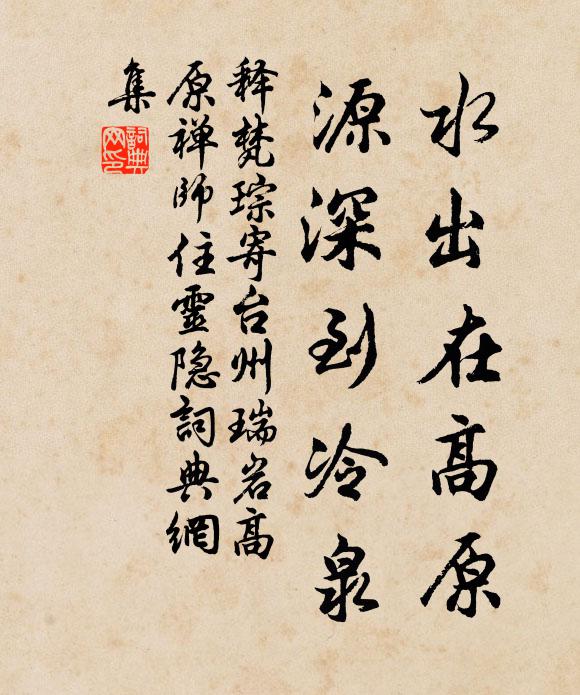 水出在高原
源深到冷泉
释梵琮寄台州瑞岩高
原禅師住靈隐詞典網
集
詞典
网印